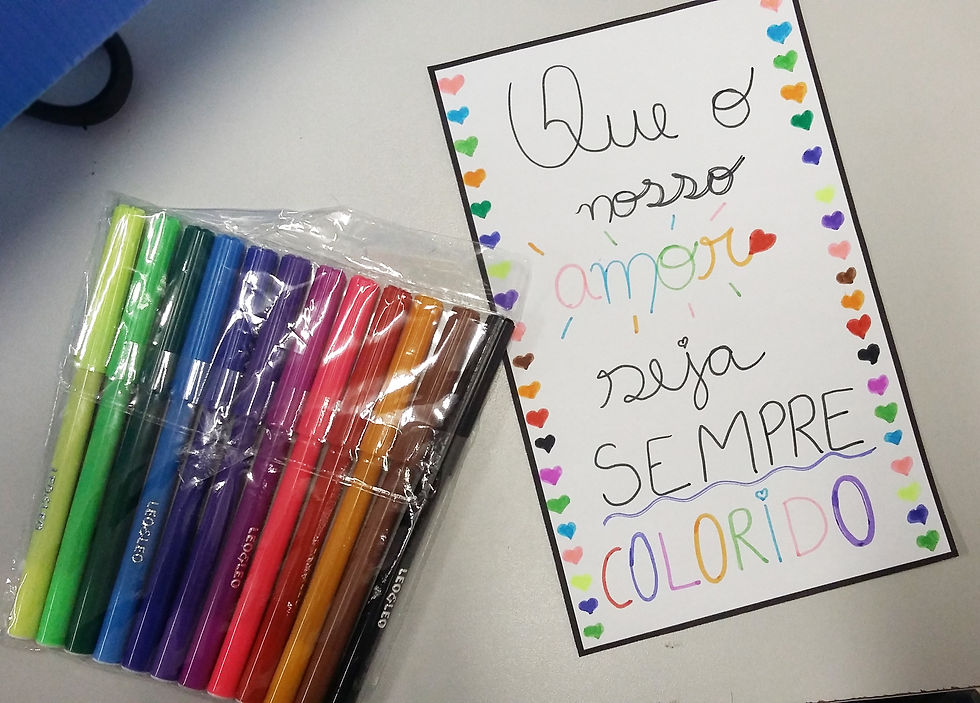 Que o
nosso
amor
seja
SEMPRE
COLORIDO
LEO&LEO
LEO&LEO
LEO&LEO
LEO&LEO